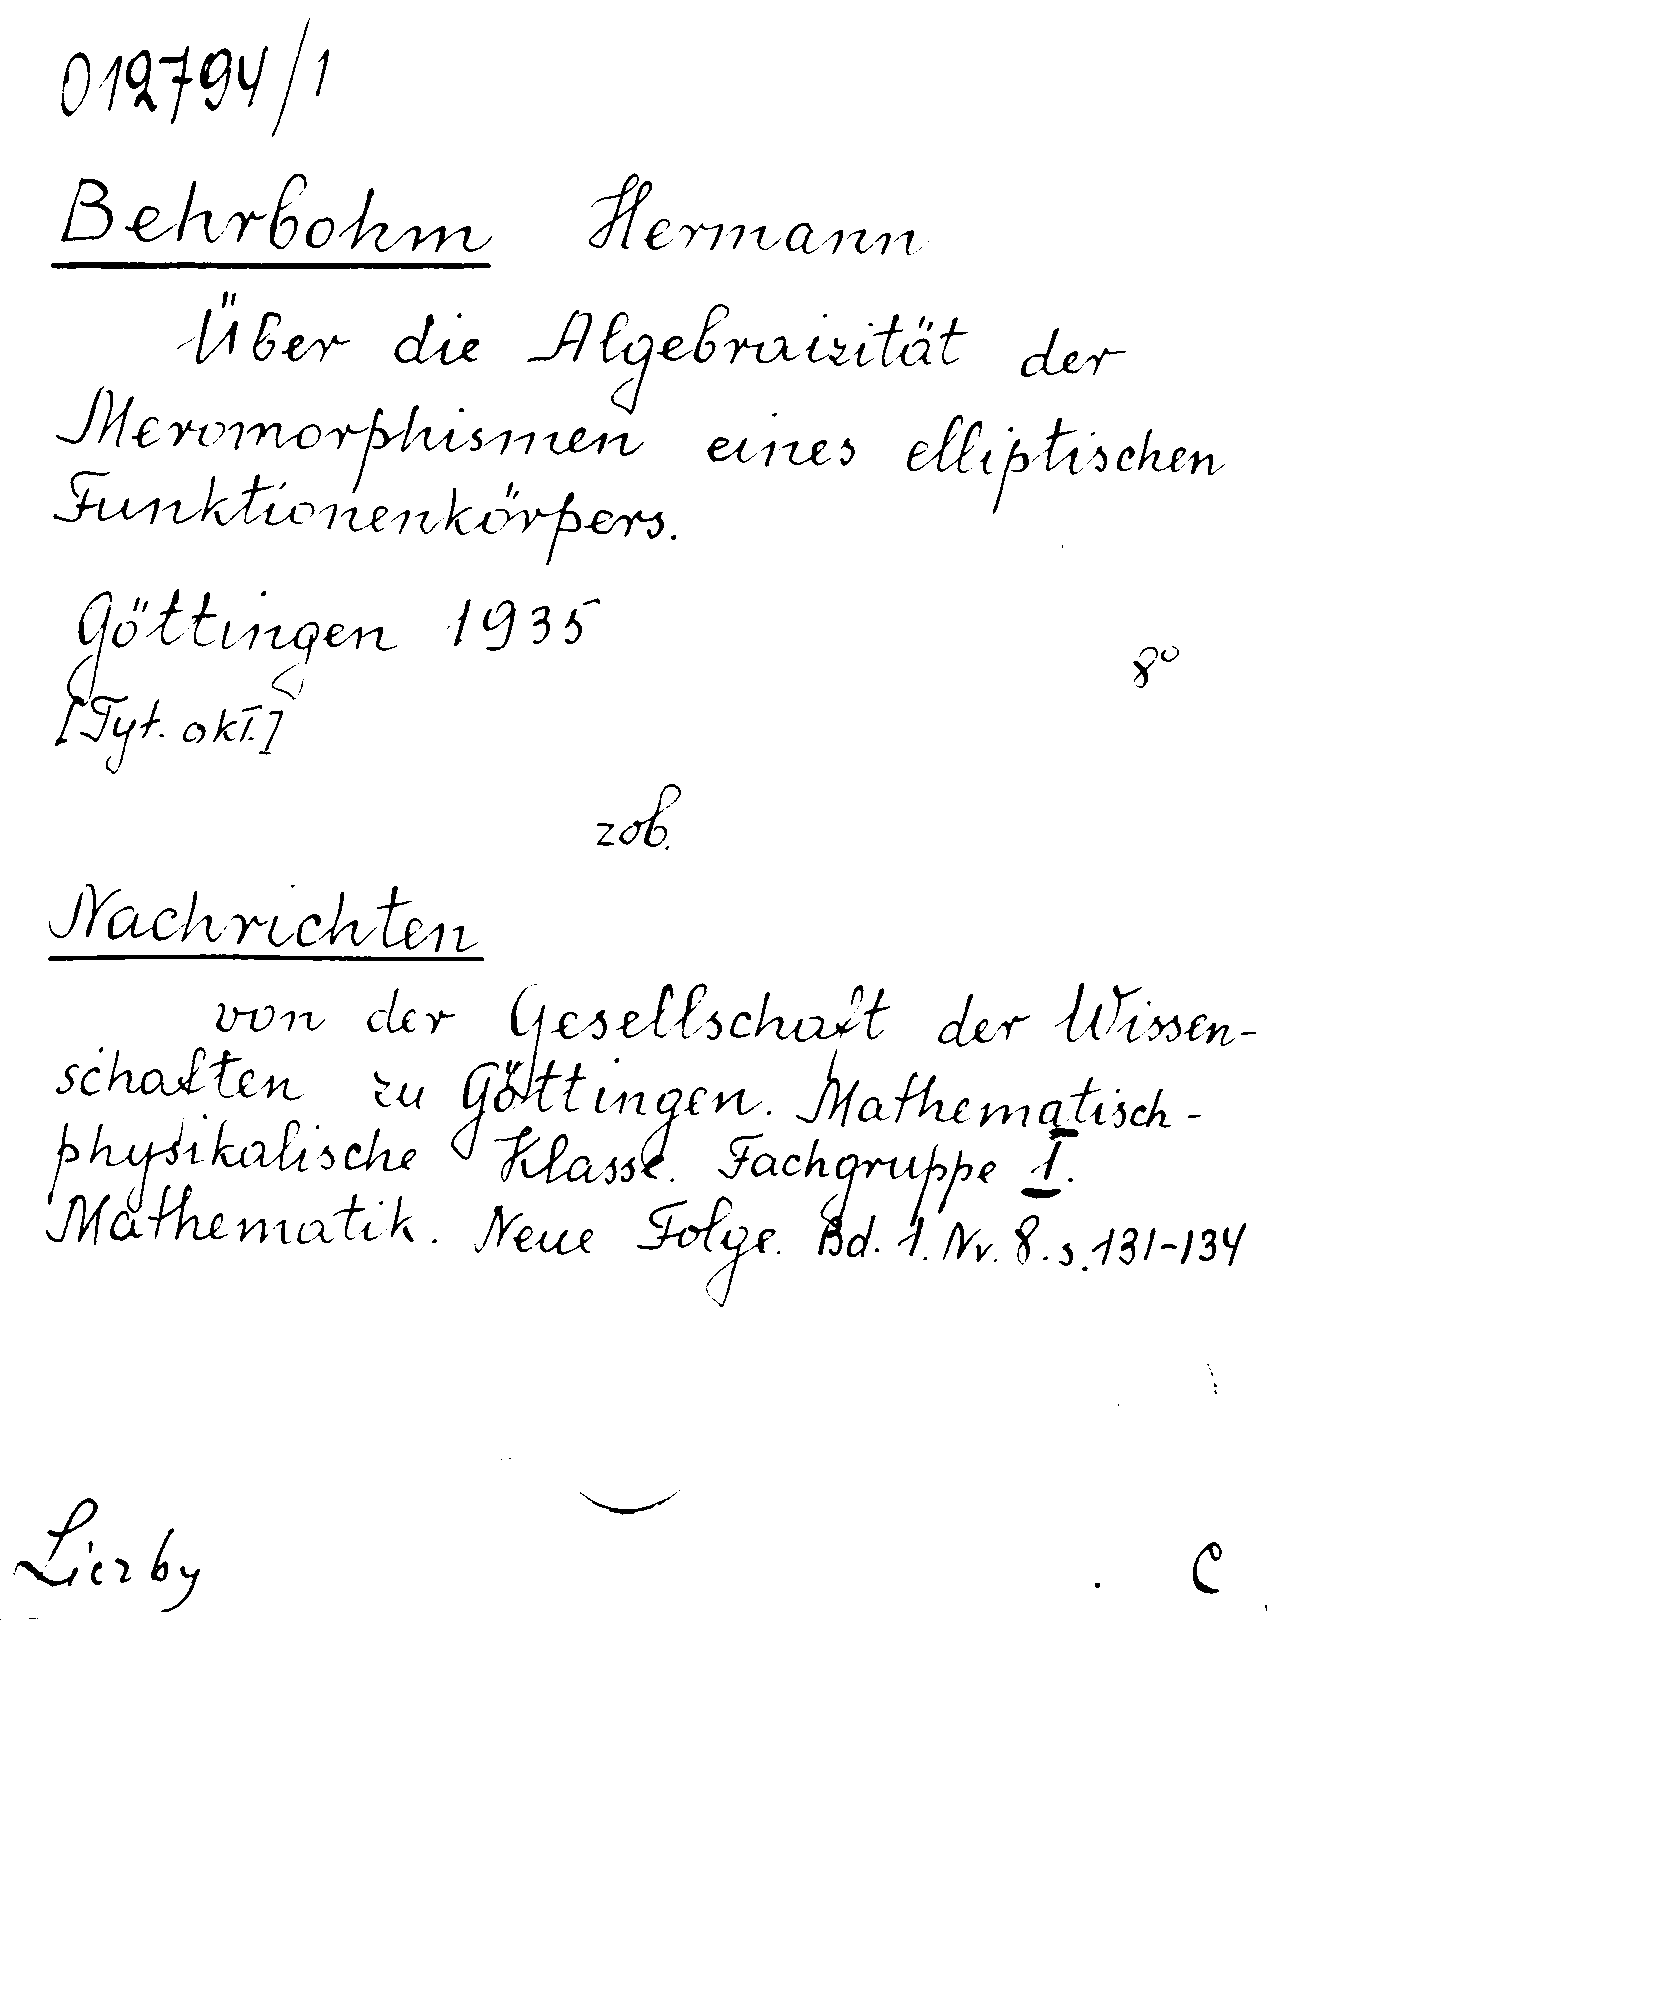 012794/1
Behrbohm Hermann
Über die Algebraizität der
Meromorphismen eines elliptischen
Funktionenkörpers.
Göttingen 1935
8°
[Tyt. okł.]
zob.
Nachrichten
von der Gesellschaft der Wissen-
schaften zu Göttingen. Mathematisch-
physikalische Klasse. Fachgruppe I.
Mathematik. Neue Folge. Bd. 1. Nr. 8. s. 131-134
Liczby C